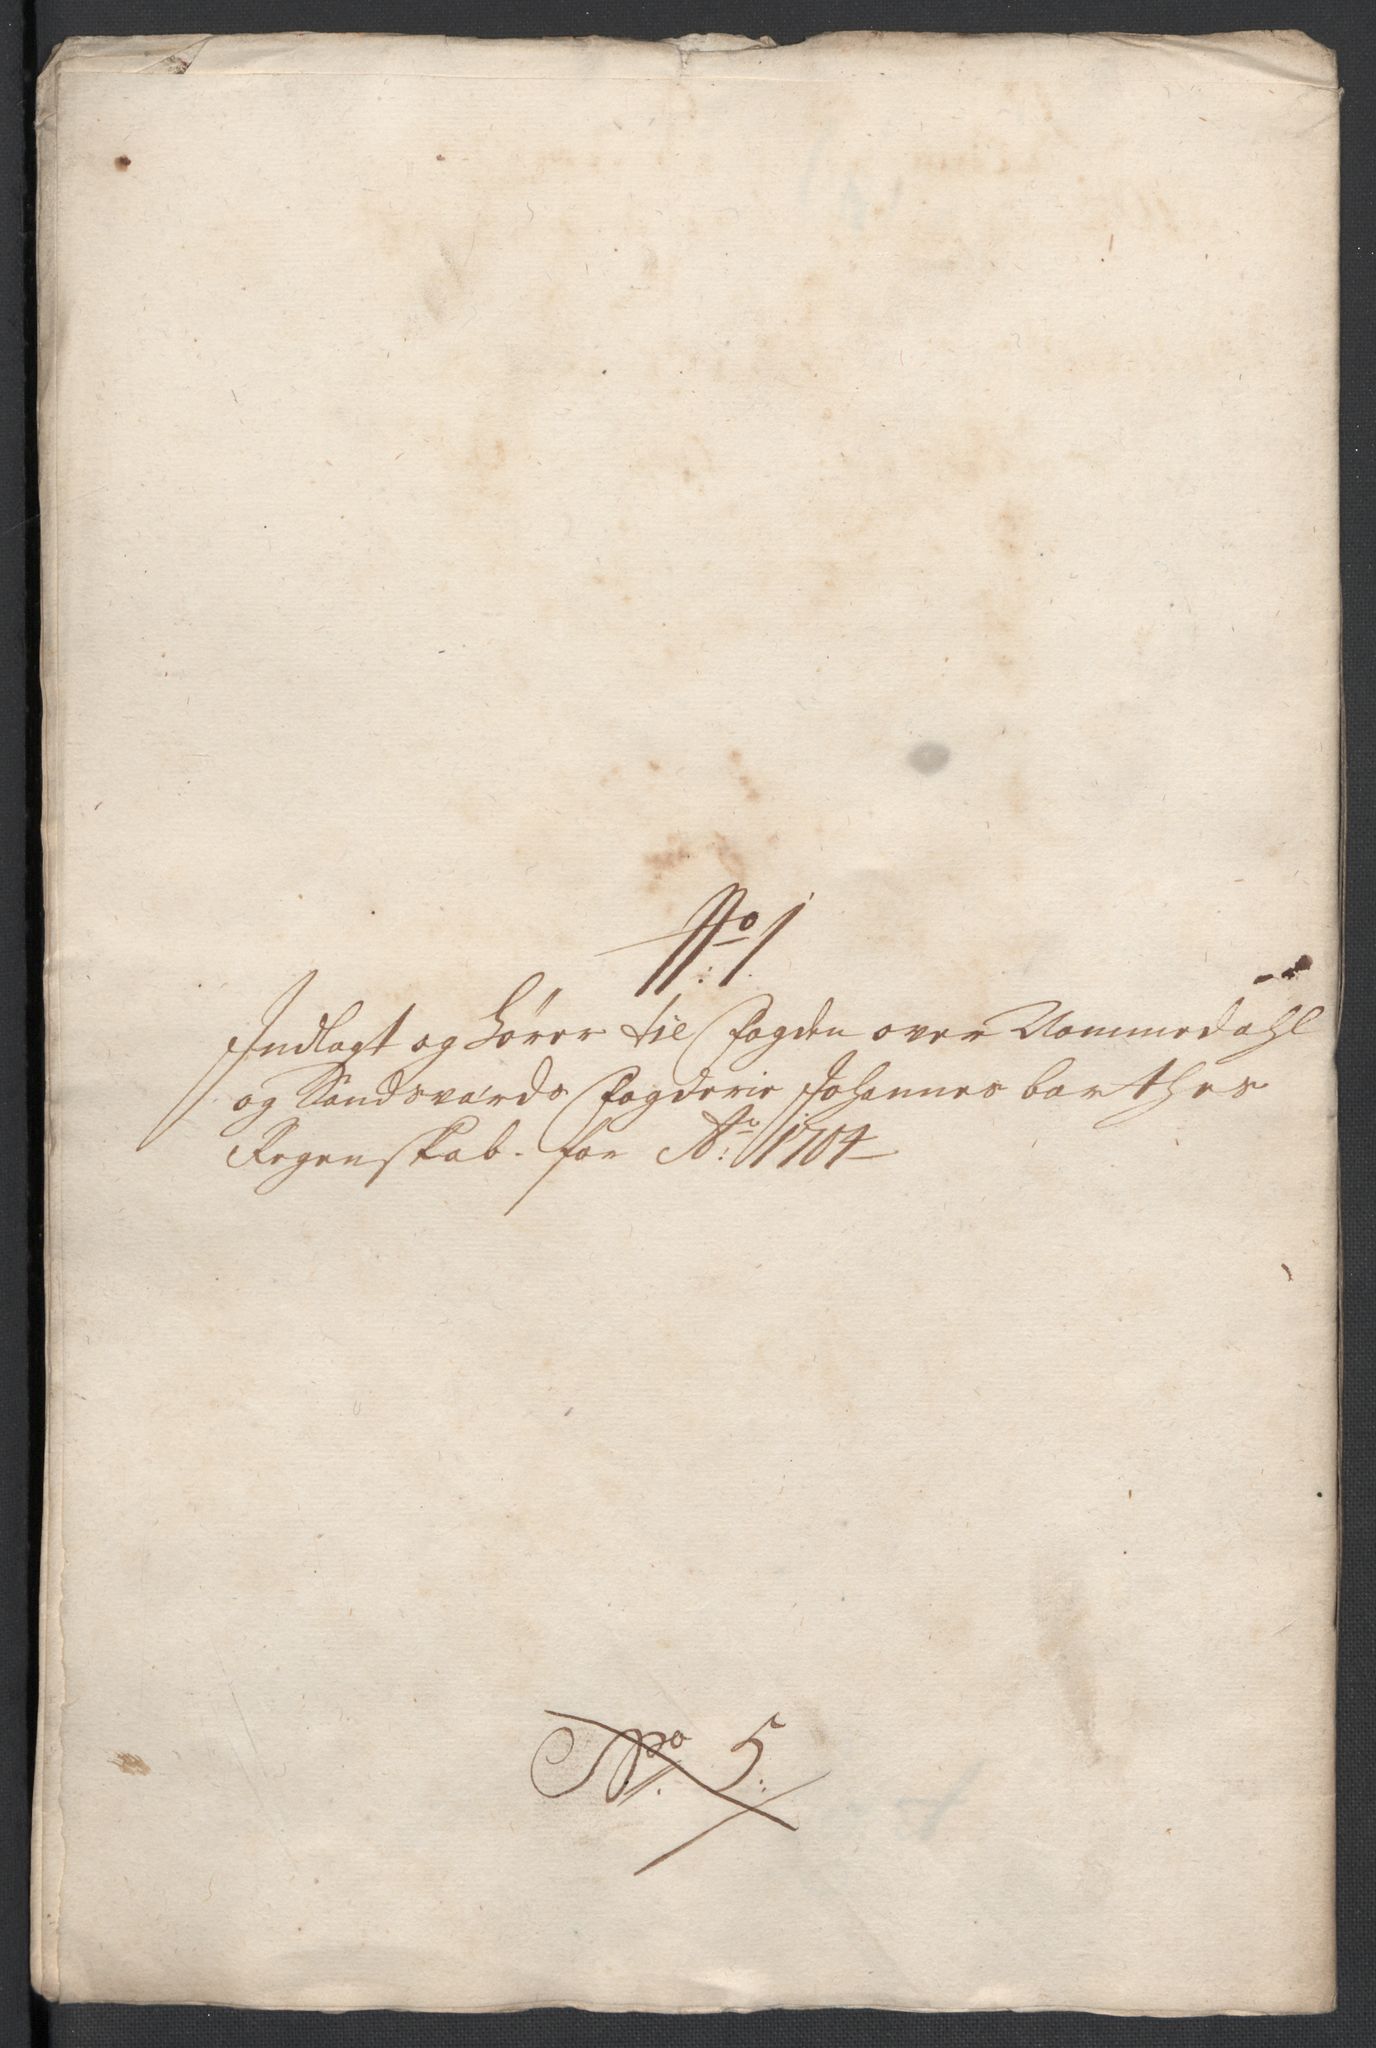 No: 1.
Indlagt og hører til Fogden over Nommedahl
og Sandsværds Fogderie Johannes barthes
Regenskab. for Ao: 1704
No. 5: